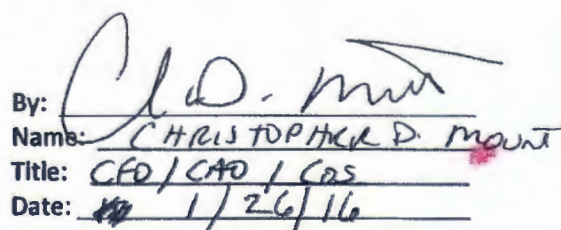 By: Ch D. Mount
Name: CHRISTOPHER D. MOUNT
Title: CFO / CAO / COS
Date: 1/26/16